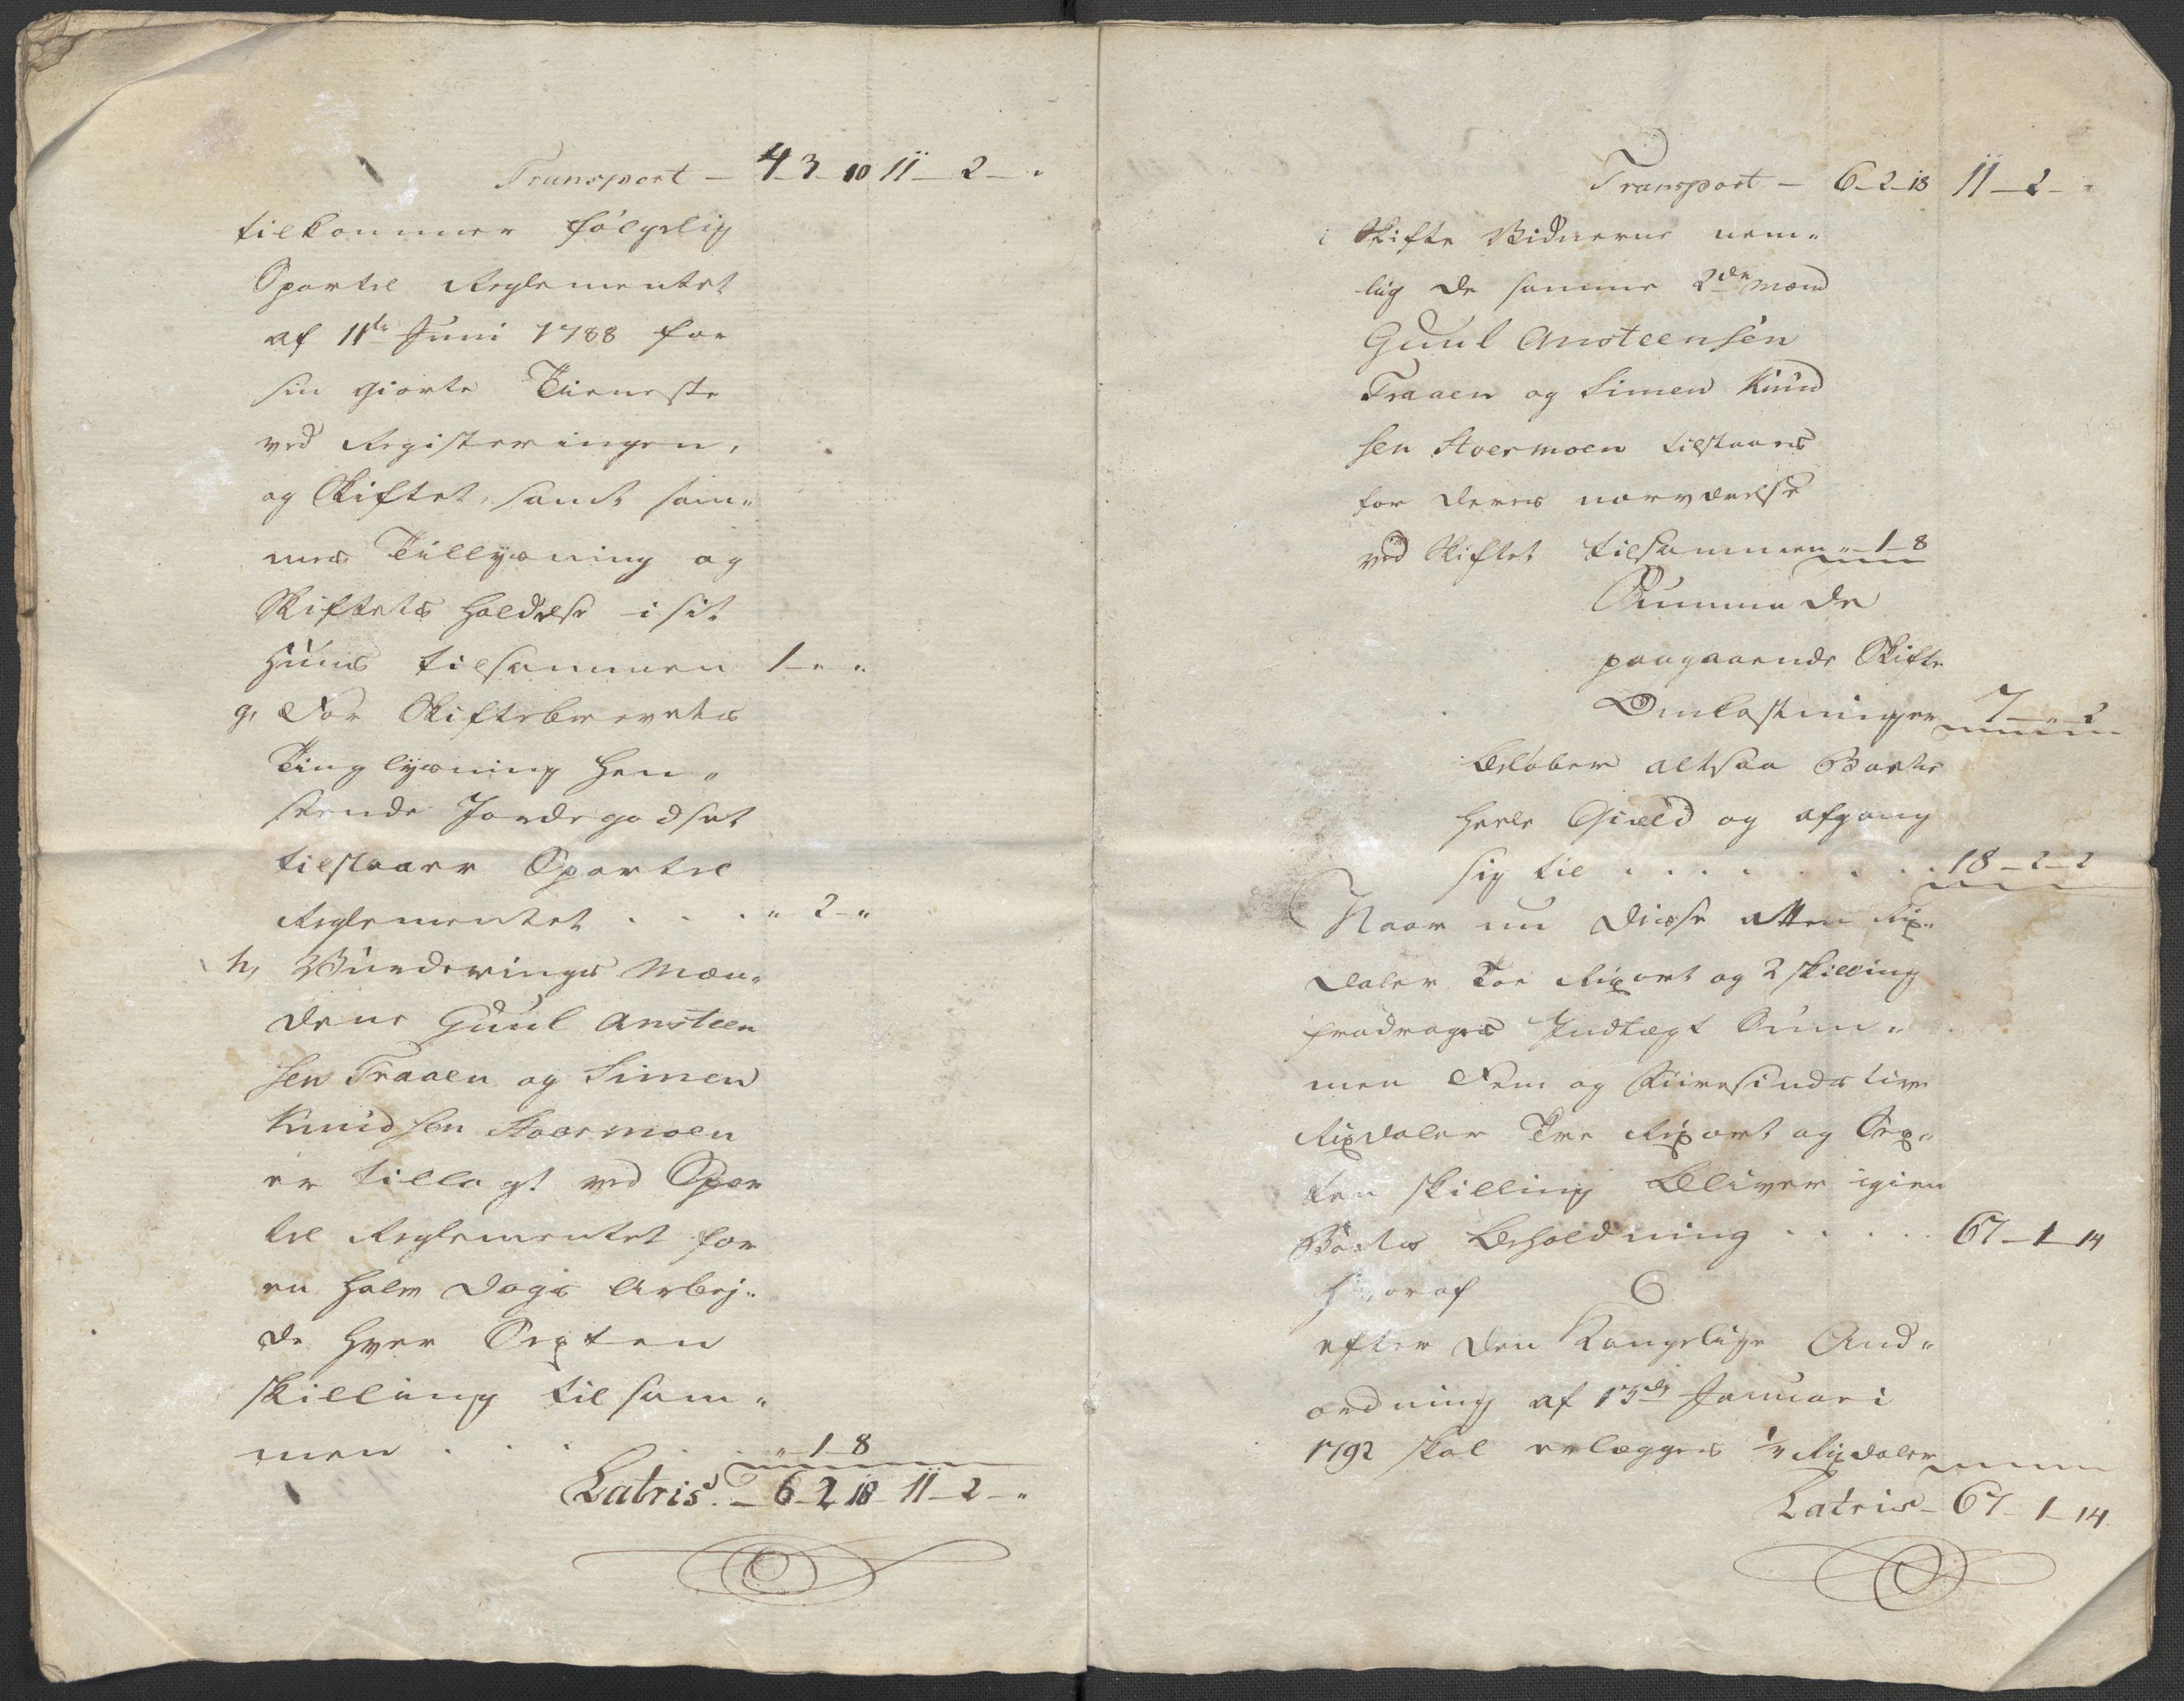 Transport – 4-3-10 11-2-"
tilkommer følgelig
Sportel Reglementet
af 11te Juni 1788 for
sin giorte Tieneste
ved Registeringen,
og Skiftet, samt sam"
mes Tillysning og
Skiftets Holdelse i sit
Huus tilsammen 1-"-"
g, For Skiftebrevets
Tinglysning hen"
seende Jordegodset
tilstaaer Sportel
Reglementet . . . " 2-"
h, Vurderings Mæn"
dene Guul Ansteen
sen Traaen og Simen
Knudsen Stoermoen
er tillagt ved Spor
tel Reglementet for
en halv Dags Arbej"
de hver Sexten
skilling tilsam"
men . . . . . "-1-8
Latris. – 6-2-18 11-2-"
Transport – 6-2-18 11-2-"
i Skifte Vidnerne nem"
lig de samme 2de Mænd
Guul Ansteensen
Traaen og Simen Knud
sen Stoermoen tilstaaes
for deres nærværelse
ved Skiftet tilsammen "-1-8
Summa de
paagaaende Skifte
Omkostninger 7-"-2
Beløber altsaa Boets
heele Giæld og afgang
sig til . . . . . . . 18-2-2
Naar nu disse atten Rix"
daler Toe Rixort og 2 skilling
fradrages Indtægt Sum"
men Fem og Fiiresindstive
Rixdaler Tre Rixort og Sex"
ten skilling bliver igien
Boets Beholdning . . . . . 67-1-14
Hvoraf
efter den Kongelige And"
ordning af 13de Januari
1792 skal erlægges ¼ Rixdaler
Latris – 67-1-14